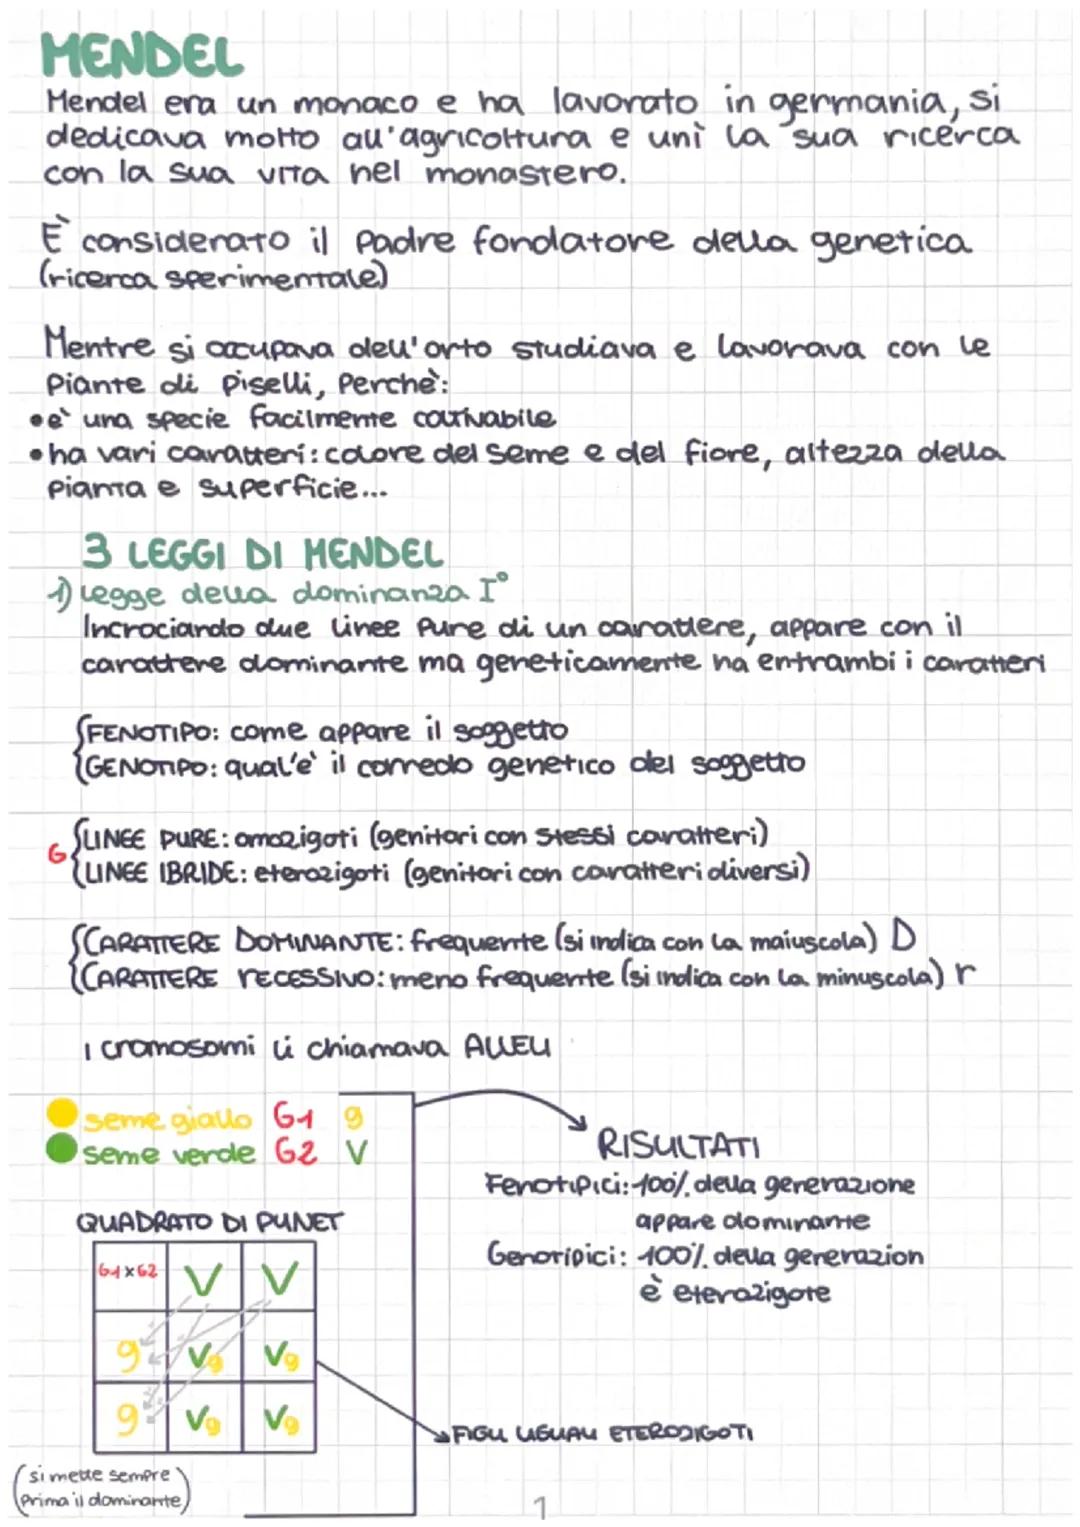 MENDEL
Mendel era un monaco e ha lavorato in germania, si
dedicava molto all'agricoltura e unì la sua ricerca
con la sua vita nel monastero.
È considerato il padre fondatore della genetica
(ricerca sperimentale)
Mentre si occupava dell'orto studiava e lavorava con le
piante di piselli, perchè:
•è una specie facilmente coltivabile
•ha vari caratteri: colore del seme e del fiore, altezza della
pianta e superficie...
3 LEGGI DI MENDEL
1) legge della dominanza I°
Incrociando due linee pure di un carattere, appare con il
carattere dominante ma geneticamente ha entrambi i caratteri
FENOTIPO: come appare il soggetto
GENOTIPO: qual'è il corredo genetico del soggetto
G
LINEE PURE: omozigoti (genitori con stessi caratteri)
LINEE IBRIDE: eterozigoti (genitori con caratteri diversi)
CARATTERE DOMINANTE: frequente (si indica con la maiuscola) D
CARATTERE recessivo: meno frequente (si indica con la minuscola) r
i cromosomi li chiamava ALLELI
seme giallo G1 g
seme verde G2 V
RISULTATI
Fenotipici: 100% della generazione
appare dominante
Genotipici: 100% della generazion
è eterozigote
QUADRATO DI PUNET
G1 x G2 V V
g Vg Vg
g Vg Vg
FIGLI UGUALI ETEROZIGOTI
(si mette sempre
prima il dominante)
1